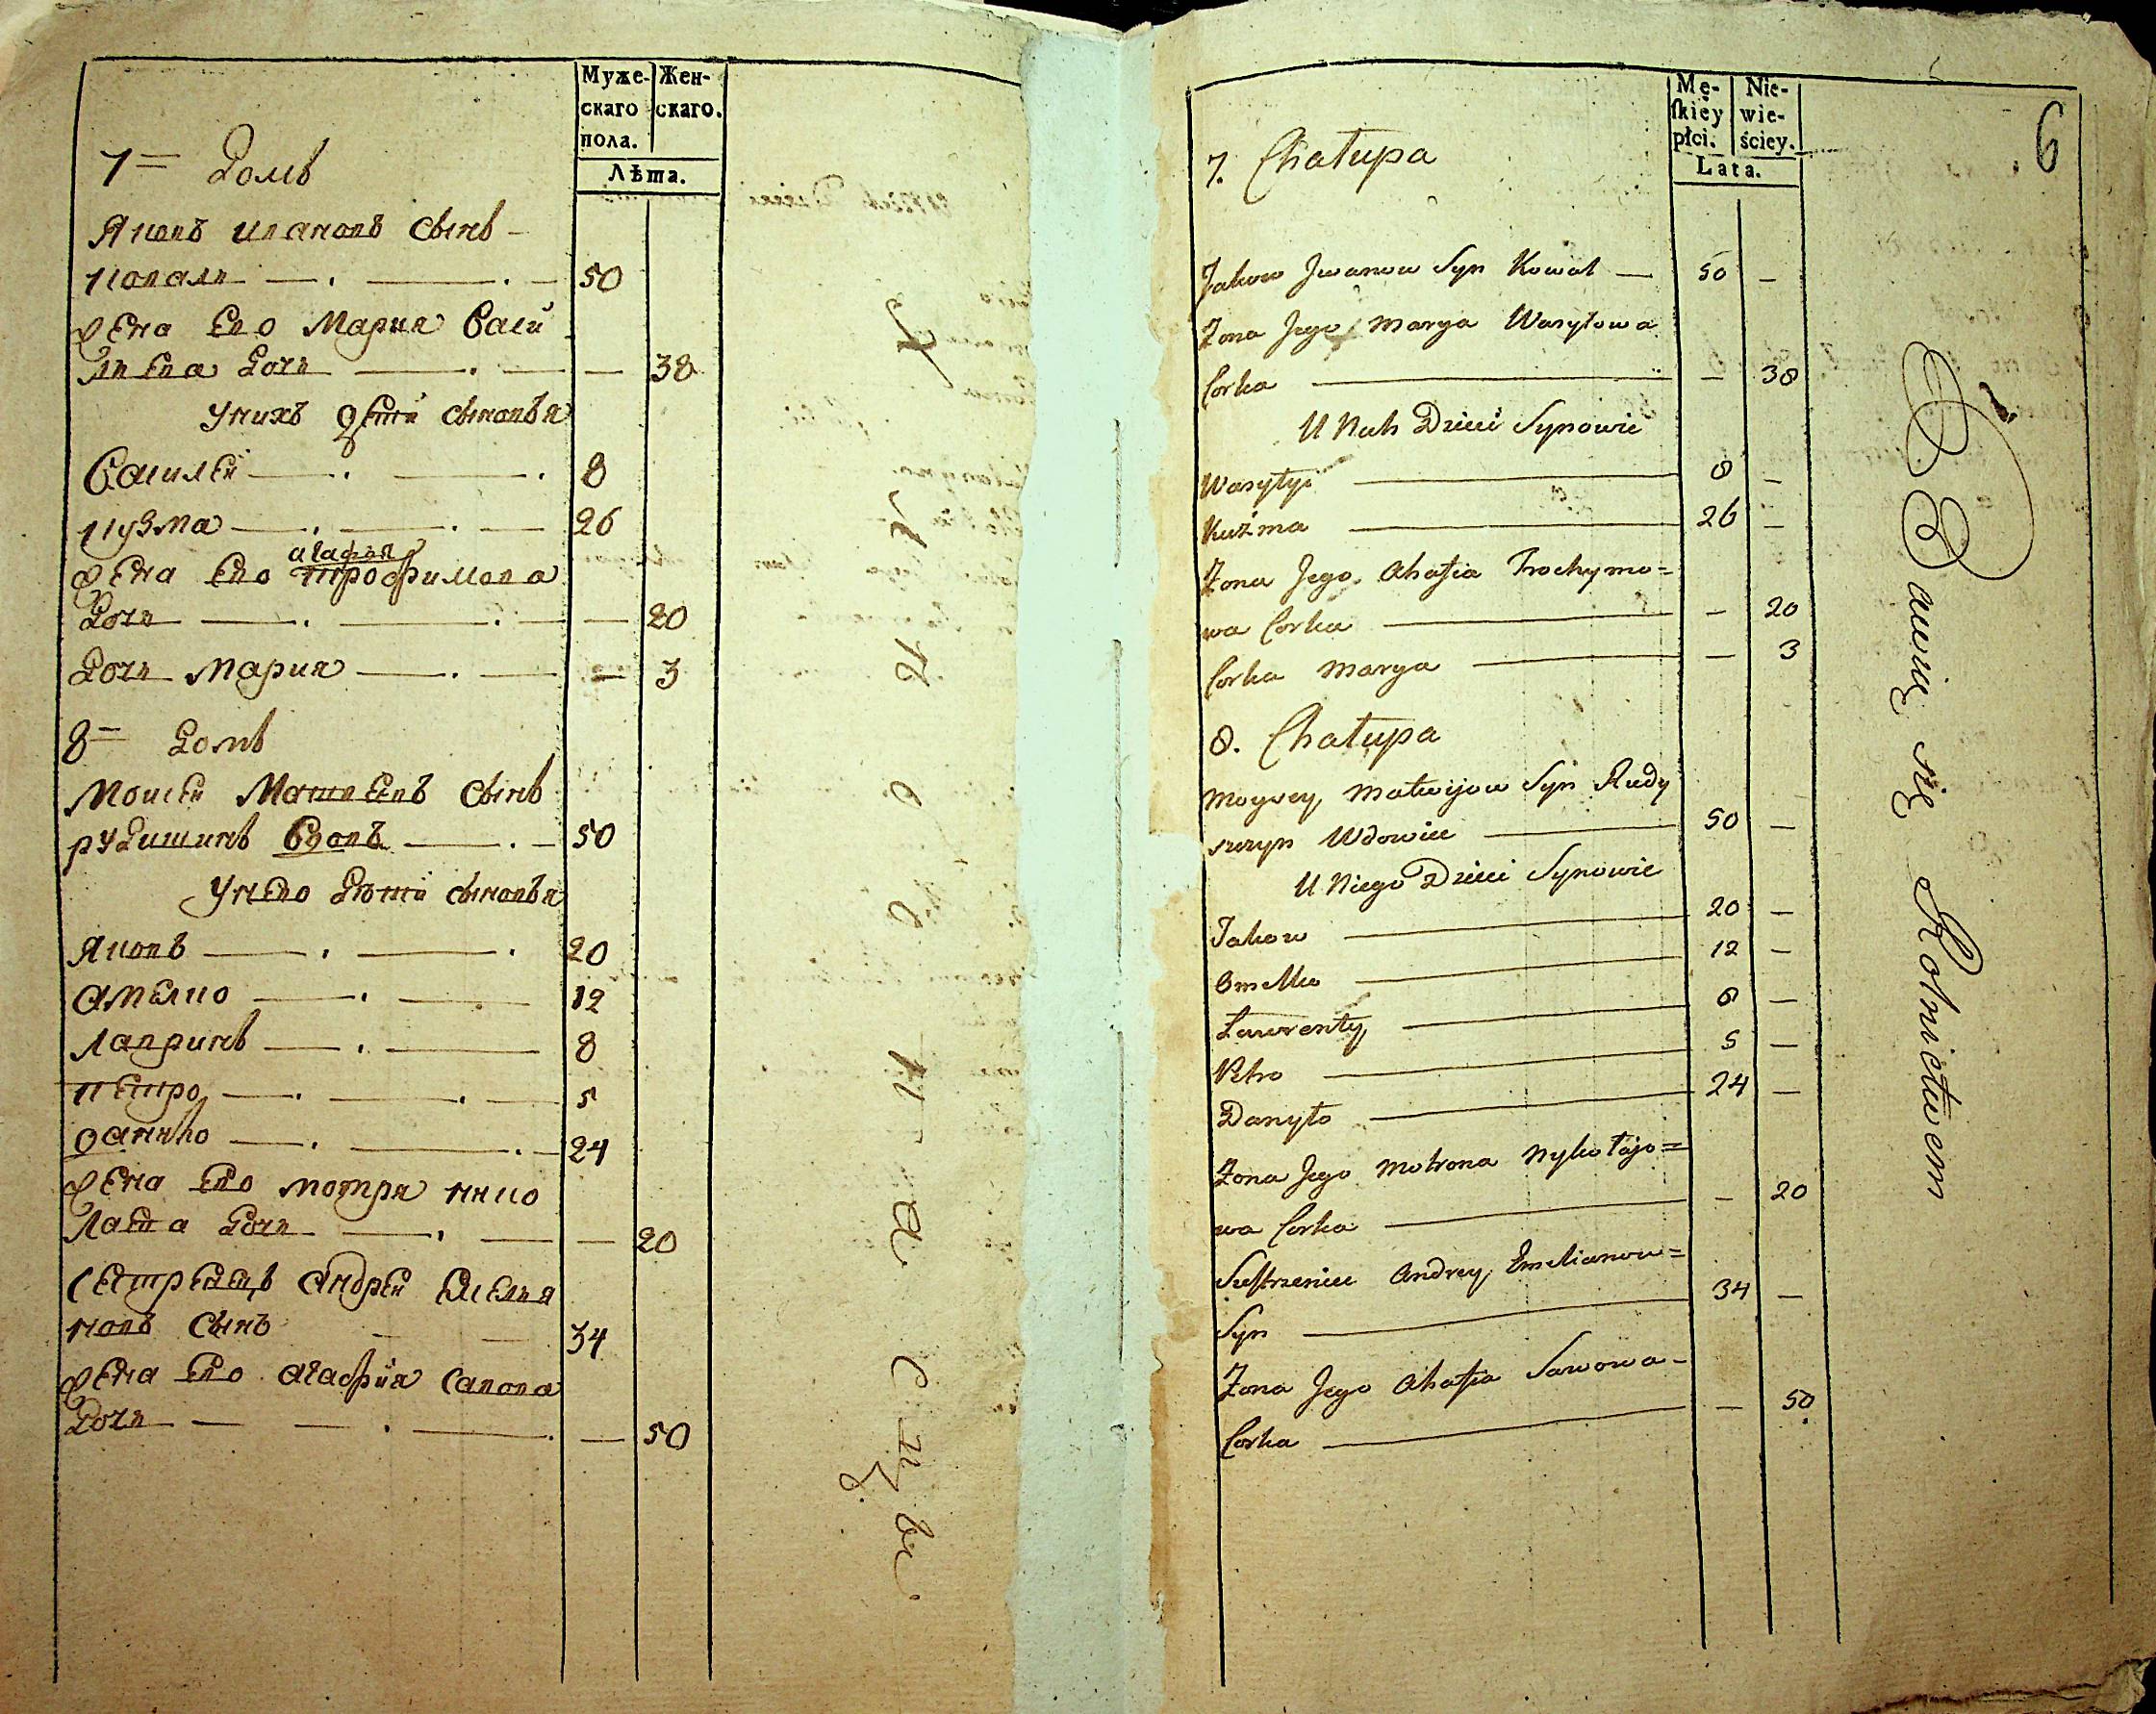 Муже-
скаго
пола.
Жен-
скаго.
Лѣта.
7 Домъ
Яковъ Ивановъ сынъ
коваль 50
Жена Ево Мария Васи
лиева дочь — 38
У нихъ дети сыновья
Василей 8
Кузма 26
агафия
Жена Ево трофимова
Дочь — 20
Дочь Мария — 3
8 Домъ
Моисей Матвеевъ сынъ
рудишинъ вдовъ 50
У нево дѣти сыновья
Яковъ 20
Амелко 12
Лавринъ 8
Петро 5
данило 24
Жена Ево мотря нико
лаева дочь — 20
Сестренецъ Андрей Емелия
новъ сынъ 34
Жена Ево агафия савова
Дочь — 50
Mę-
skiey
płci.
Nie-
wie-
ściey.
Lata.
6
7. Chałupa
Jakow Jwanow Syn Kowal — 50 —
Żona Jego Marya Wasylowa
Corka — 38
U Nich Dzieci Synowie
Wasyly 8 —
Kuźma 26 —
Żona Jego Ahafia Trochymo=
wa Corka — 20
Corka Marya — 3
8. Chałupa
Moysey Matwijow Syn Rudy
szyn Wdowiec 50 —
U Niego Dzieci Synowie
Jakow 20 —
Omelko 12 —
Ławrenty 8 —
Petro 5 —
Danyło 24 —
Żona Jego Motrona Nykołajo=
wa Corka — 20
Siestrzeniec Andrey Emelianow=
Syn 34 —
Żona Jego Ahafia Sawowa-
Corka — 50
Bawią się Rolnictwem